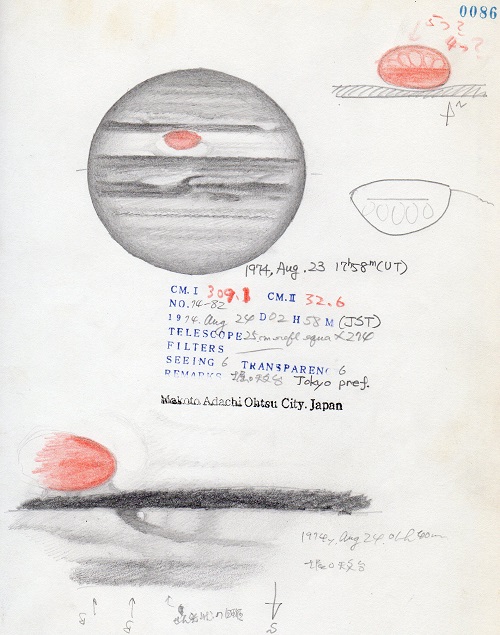 0086
5つ?
4つ?
N
1974, Aug. 23 17h58m (UT)
CM.I 309.1 CM.II 32.6
NO. 74-82
1974. Aug 24 D 02 H 58 M (JST)
TELESCOPE 25cm refl equa X 274
FILTERS
SEEING 6 TRANSPARENC 6
REMARKS Tokyo pref.
Makoto Adachi Ohtsu City. Japan
1974, Aug 24.
S